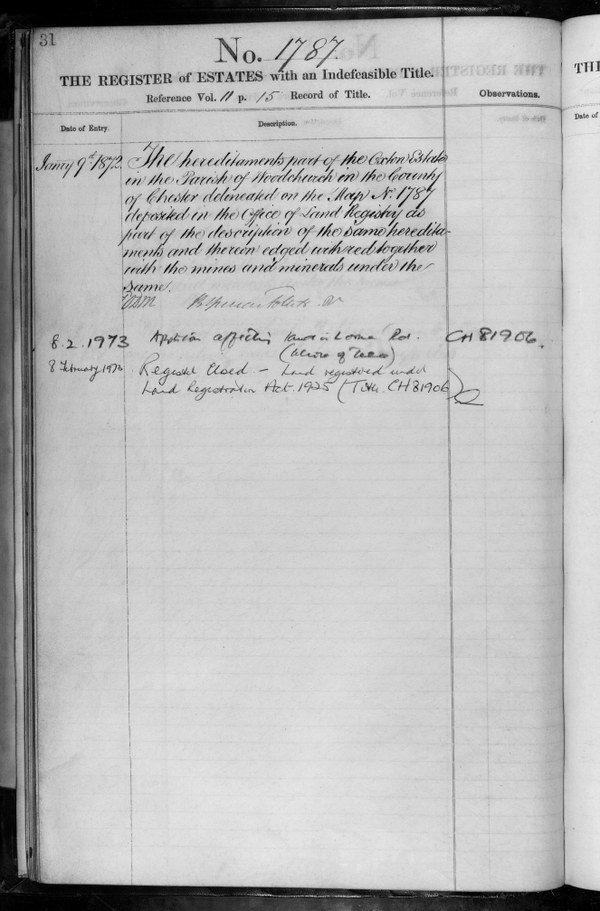 31
No. 1787.
THE REGISTER of ESTATES with an Indefeasible Title.
Reference Vol. 11 p. 15 Record of Title.
Observations.
Date of Entry.
Description.
Jany 9th 1872
The hereditaments part of the Oxton Estate
in the Parish of Woodchurch in the County
of Chester delineated on the Map No. 1787
deposited in the Office of Land Registry as
part of the description of the same heredita-
ments and thereon edged with red together
with the mines and minerals under the
same.
8.2.1973 affecting land in Rd. CH 81906.
8 February 1973 Register closed – Land registered under
Land Registration Act 1925 (Title CH 81906)
THE
Date of